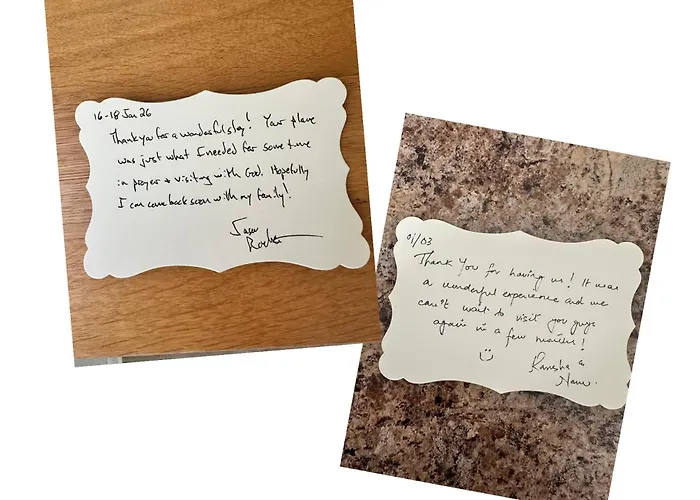 16-18 Jan 26
Thank you for a wonderful stay! Your place
was just what I needed for some time
in prayer + visiting with God. Hopefully
I can come back soon with my family!
01/03
Thank You for having us! It was
a wonderful experience and we
can't wait to visit you guys
again in a few months!
Kanisha &